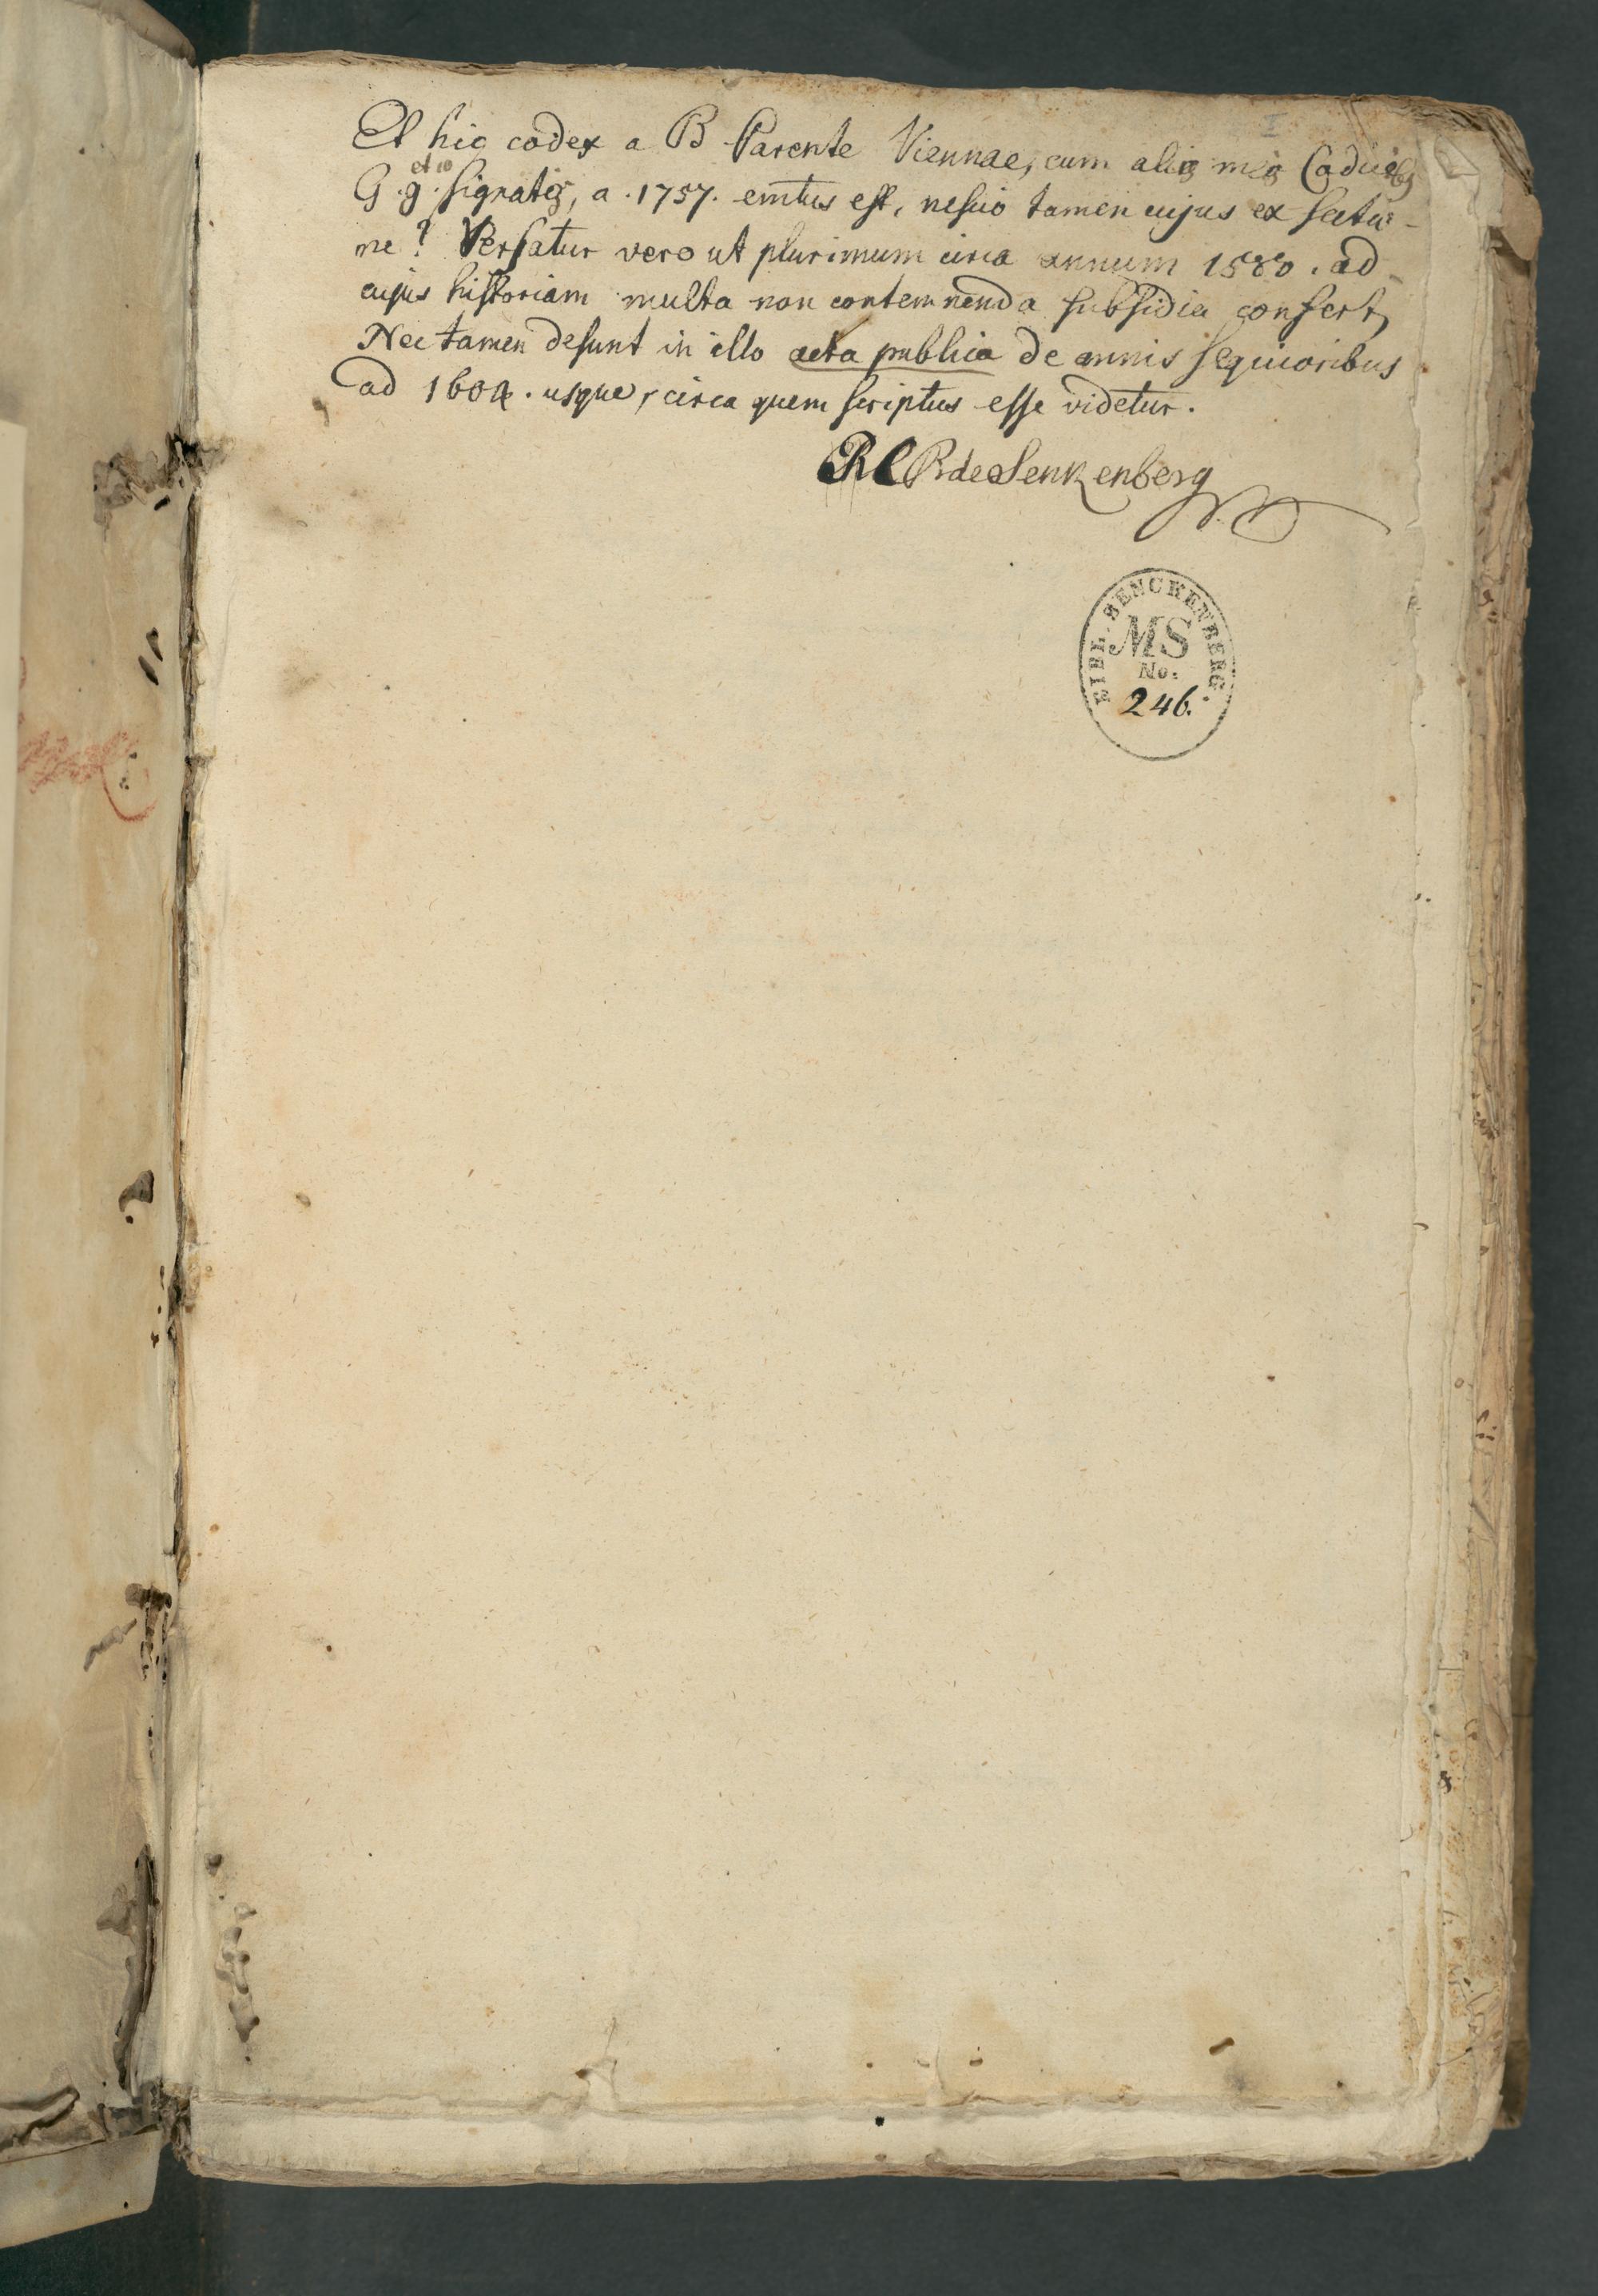 I
Et hic codex a B Parente Viennae, cum aliis meis Codicibus
et 10
G. g. signatis, a. 1757. emtus est, nescio tamen cujus ex
ne? Versatur vero ut plurimum circa annum 1580. ad
cujus historiam multa non contemnenda subsidia confert,
Nec tamen desunt in illo acta publica de annis sequioribus
ad 1604. usque, circa quem scriptus esse videtur.
RC R de Senkenberg
BIBL. SENCKENBERG.
MS
No:
246.